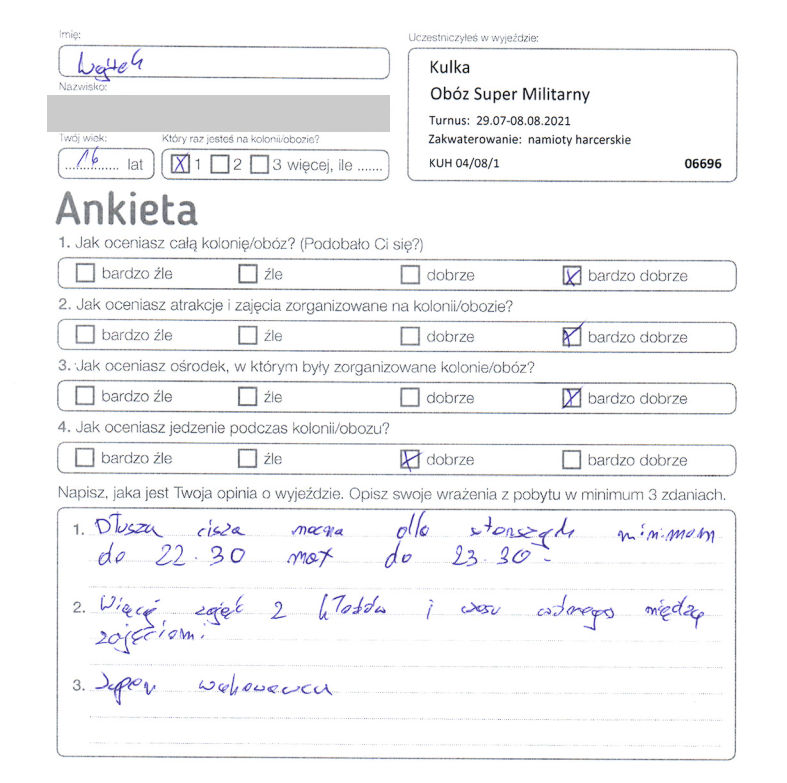 Imię:
Wojtek
Nazwisko:
Twój wiek:
16 lat
Który raz jesteś na kolonii/obozie?
X 1 2 3 więcej, ile .......
Uczestniczyłeś w wyjeździe:
Kulka
Obóz Super Militarny
Turnus: 29.07-08.08.2021
Zakwaterowanie: namioty harcerskie
KUH 04/08/1 06696
Ankieta
1. Jak oceniasz całą kolonię/obóz? (Podobało Ci się?)
bardzo źle źle dobrze X bardzo dobrze
2. Jak oceniasz atrakcje i zajęcia zorganizowane na kolonii/obozie?
bardzo źle źle dobrze X bardzo dobrze
3. Jak oceniasz ośrodek, w którym były zorganizowane kolonie/obóz?
bardzo źle źle dobrze X bardzo dobrze
4. Jak oceniasz jedzenie podczas kolonii/obozu?
bardzo źle źle X dobrze bardzo dobrze
Napisz, jaka jest Twoja opinia o wyjeździe. Opisz swoje wrażenia z pobytu w minimum 3 zdaniach.
1. Dłusza cisza nocna dla starszych minimum
do 22.30 max do 23.30.
2. Więcej zajęć z kładów i czasu wolnego między
zajęciami
3. Super wychowawca